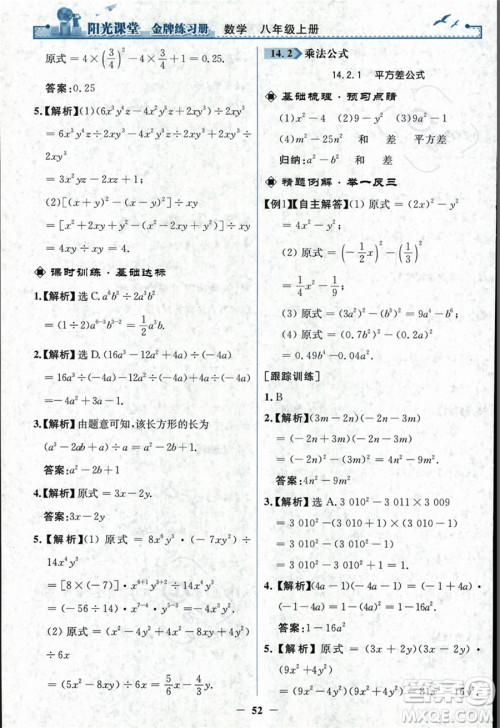 阳光课堂 金牌练习册 数学 八年级上册
原式=4×(3/4)²-4×(1/2)²
答案:0.25
5.【解析】(1)(6x³y⁴z-4x²y³z+2xy³)÷2xy³
=6x³y⁴z÷2xy³-4x²y³z÷2xy³+2xy³÷2xy³
=3x²yz-2xz+1.
(2)[(x+y)²-(x-y)²]÷(xy)
=[x²+2xy+y²-x²+2xy-y²]÷xy
=4xy÷xy=4.
课时训练·基础达标
1.【解析】选C.a⁶b³÷2a³b²
=(1÷2)a⁶⁻³b³⁻²=1/2a³b.
2.【解析】选D.(16a³-12a²+4a)÷(-4a)
=16a³÷(-4a)-12a²÷(-4a)+4a÷(-4a)=-4a²+3a-1.
3.【解析】由题意可知,该长方形的长为
(a³-2ab+a)÷a=a²-2b+1.
答案:a²-2b+1
4.【解析】原式=3x-2y.
答案:3x-2y
5.【解析】(1)原式=8x⁶y³·(-7xy²)÷14x⁴y³
=[8×(-7)]·x⁶⁺¹y³⁺²÷14x⁴y³
=(-56÷14)·x⁷⁻⁴·y⁵⁻³=-4x³y².
(2)原式=(x²-4xy+4y²-4y²+x²-x)÷6x
=(2x²-4xy-x)÷6x=1/3x-2/3y-1/6.
14.2 乘法公式
14.2.1 平方差公式
基础梳理·预习点睛
(1)x²-1 (2)9-a² (3)x²-4y²
(4)m²-25n² 和 差 平方差
归纳:a²-b² 和 差
精题例解·举一反三
【例1】【自主解答】(1)原式=(2x)²-y²
=4x²-y².
(2)原式=(-1/2x)²-(1/3y)²
=1/4x²-1/9y².
(3)原式=(3a²)²-(y³)²=9a⁴-y⁶.
(4)原式=(0.7b²)²-(0.2a³)²
=0.49b⁴-0.04a⁶.
[跟踪训练]
1.B
2.【解析】(3m-2n)(-3m-2n)
=(-2n)²-(3m)²=4n²-9m².
答案:4n²-9m²
3.【解析】选A.3 010²-3 011×3 009
=3 010²-(3 010+1)(3 010-1)
=3 010²-(3 010²-1)
=3 010²-3 010²+1=1.
4.【解析】(4a-1)(-4a-1)=(-1)²-(4a)²=1-16a².
答案:1-16a²
5.【解析】(1)原式=(3x+2y)(3x-2y)·
52